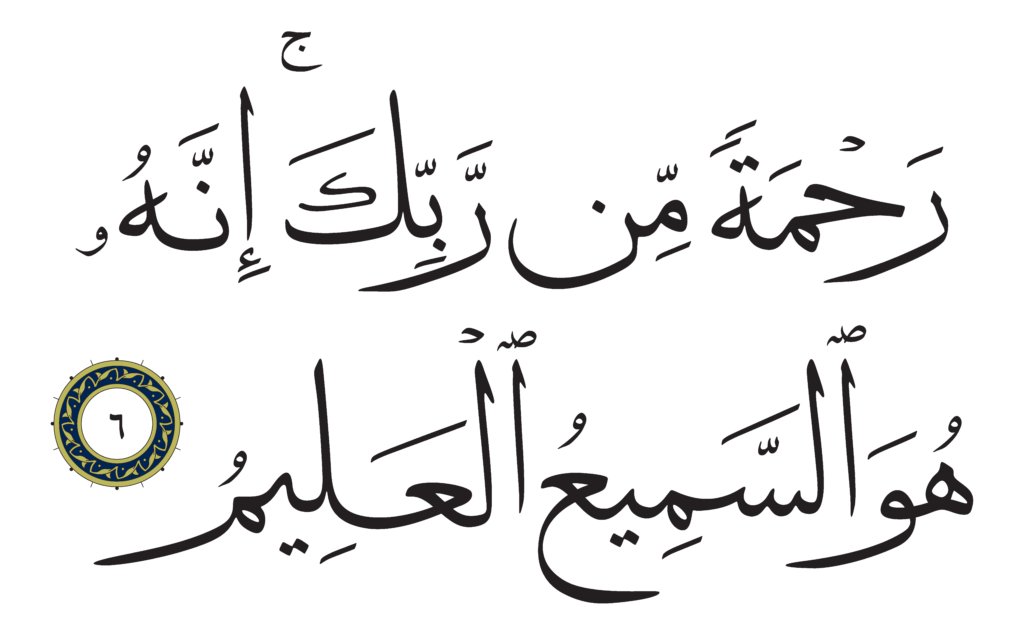 رَحْمَةً مِّن رَّبِّكَ ۚ إِنَّهُۥ
هُوَ ٱلسَّمِيعُ ٱلْعَلِيمُ ٦